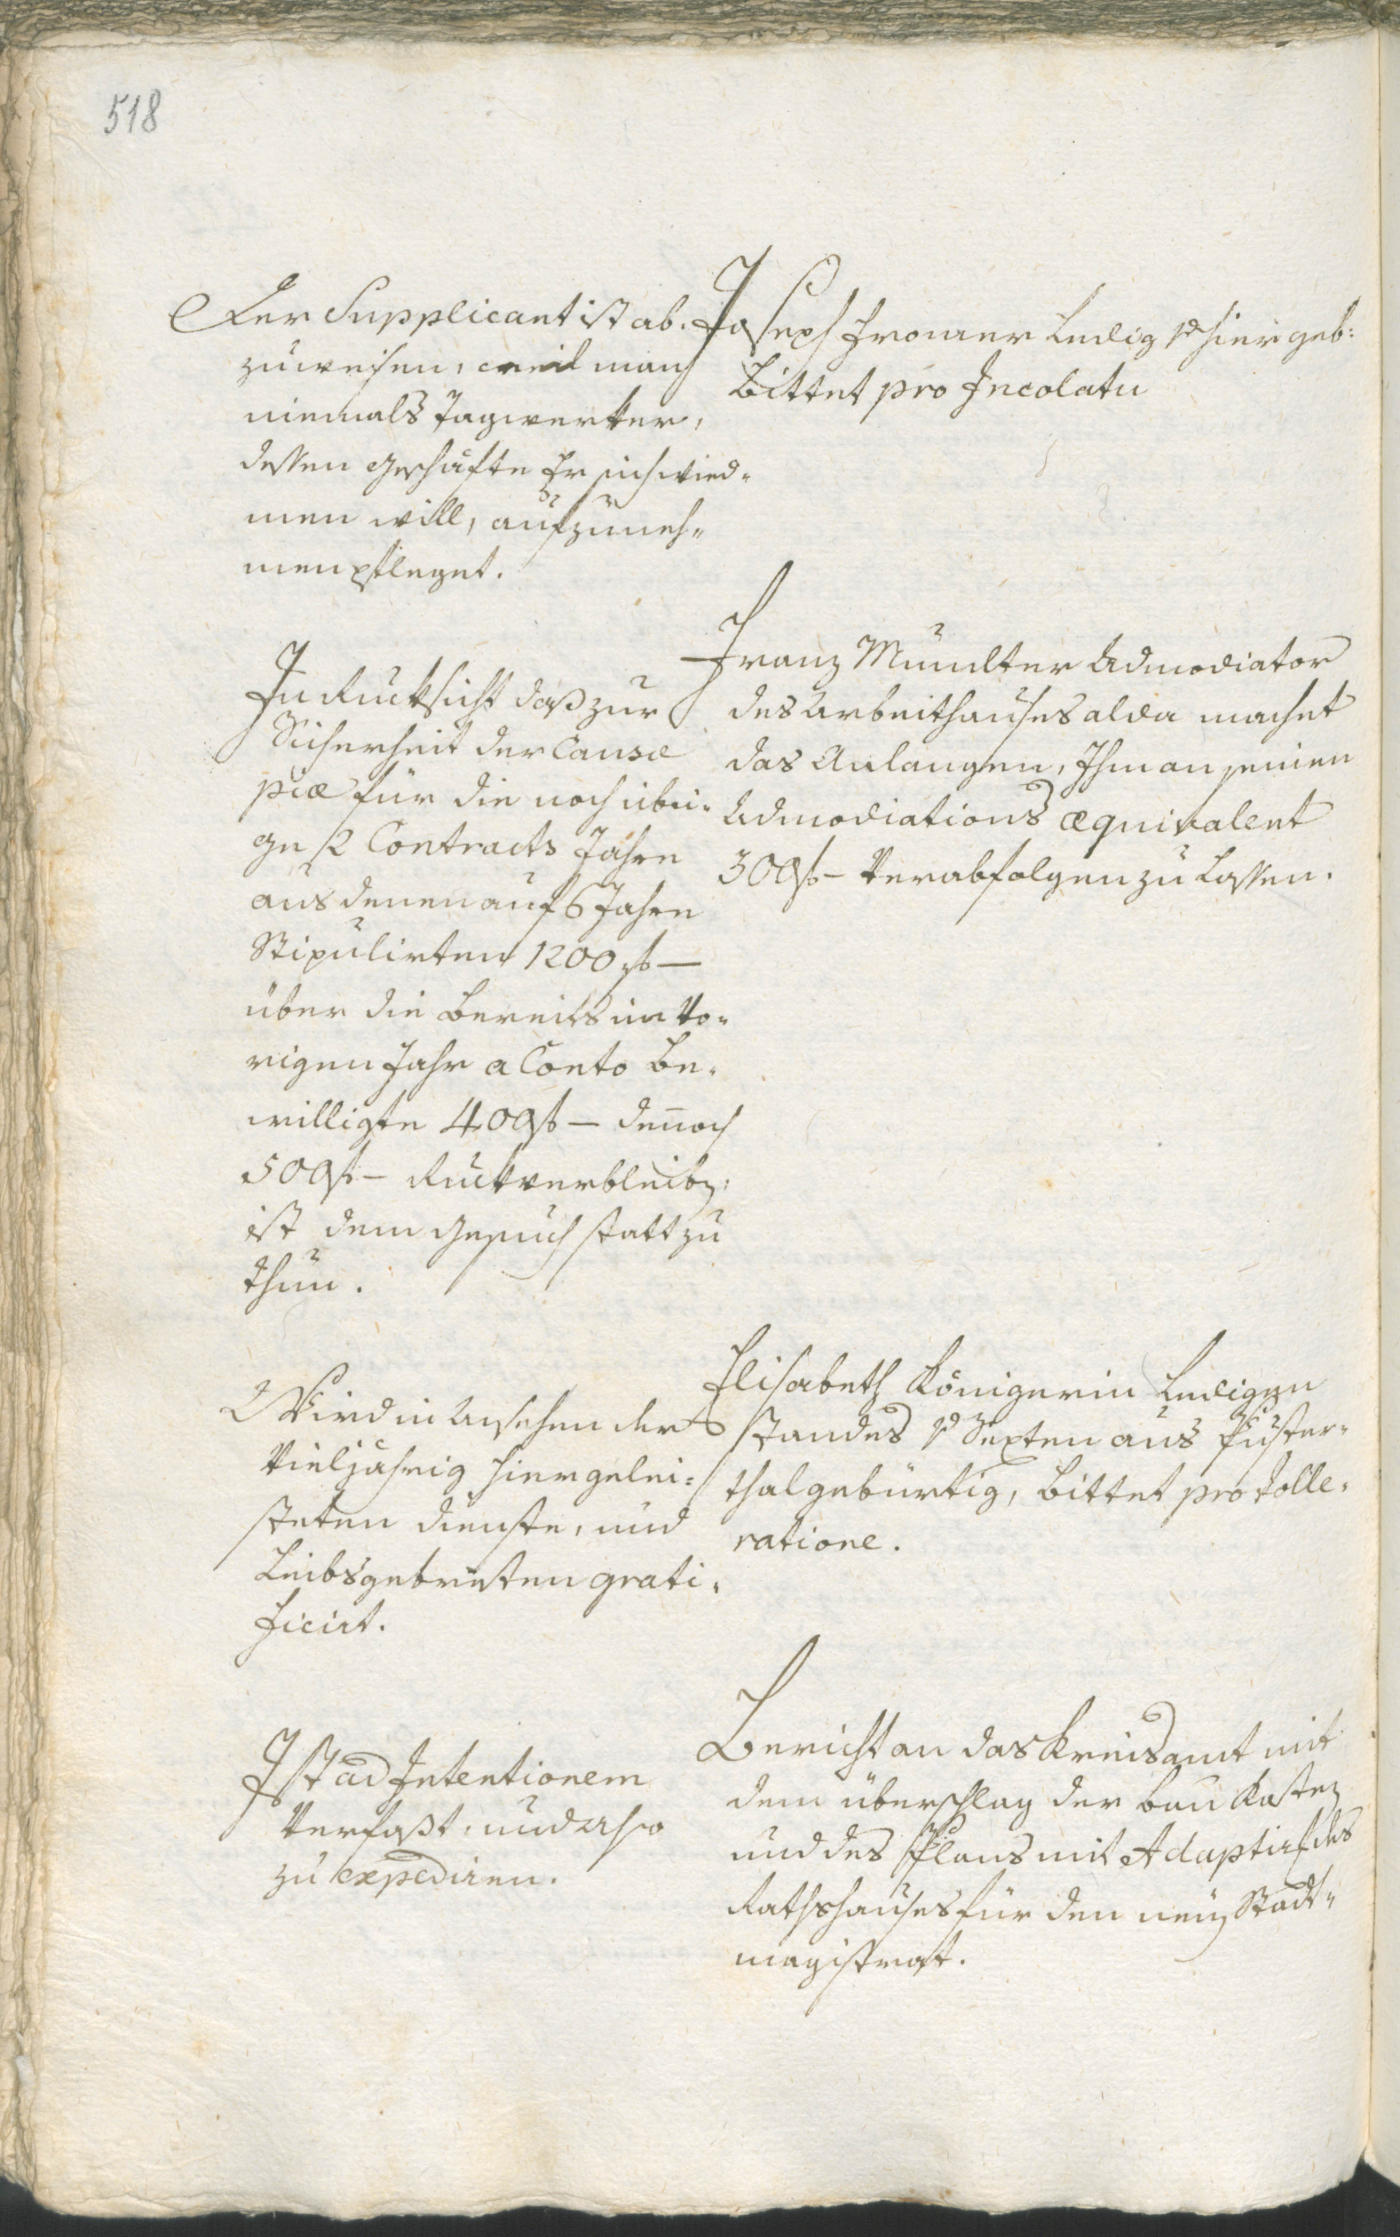 518
Der Supplicant ist ab-
zuweisen, weil man
niemals Tagwerker,
dessen Geschäfte Er sich wied-
men will, aufzuneh-
men pfleget.
Joseph Fromer Ledig v. hier geb:
Bittet pro Incolatu
In Rücksicht daß zur
Sicherheit der Causæ
piæ für die noch übri-
ge 2 Contracts Jahre
aus denen auf 6 Jahre
Stipulirten 1200 f –
über die bereits im vo-
rigen Jahr a Conto be-
willigte 400 f – dennoch
500 f – Rückverbleiben:
ist dem Gesuch statt zu
thun.
Franz Mündter Admodiator
des Arbeithauses alda machet
das Anlangen, Ihm an seinen
Admodiations æquivalent
300 f – verabfolgen zu lassen.
Wird in Ansehen der
Vieljährig hier gelei-
steten dienste, und
Leibsgebresten grati-
ficirt.
Elisabeth Königerin Ledigen
standes v. Sexten aus Puster-
thal gebürtig, bittet pro Tolle-
ratione.
Ist ad Intentionem
verfaßt, und also
zu expediren.
Bericht an das Kreisamt mit
dem überschlag der bau Kosten
und des Plans mit Adaptir. des
Rathshauses für den neuen Stadt-
magistrat.